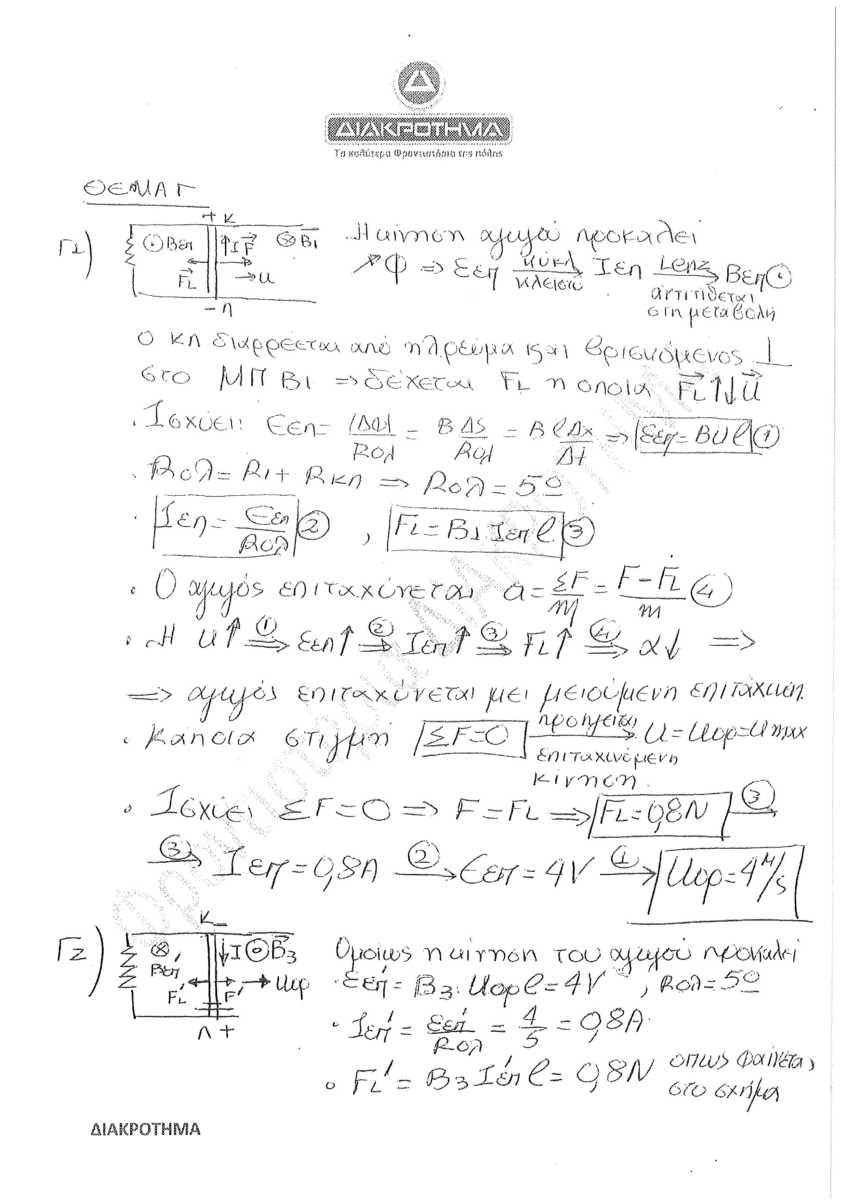 ΔΙΑΚΡΟΤΗΜΑ
Τα καλύτερα Φροντιστήρια της πόλης
ΘΕΜΑ Γ
Γ1)
+ Κ
⊙Βεπ ↑Ι F ⊗B1
FL → u
- Λ
Η κίνηση αγωγού προκαλεί
↗Φ ⇒ Εεπ κύκλ κλειστό → Ιεπ Lenz αντιτίθεται στη μεταβολή → Βεπ⊙
Ο ΚΛ διαρρέεται από ηλ ρεύμα και βρισκόμενος ⊥
στο ΜΠ Β1 ⇒ δέχεται FL η οποία FL↑↓u
. Ισχύει: Εεπ = |ΔΦ|/Rολ = Β ΔS/Rολ = Β l Δx/Δt ⇒ Εεπ = BUl (1)
. Rολ = R1 + RΚΛ ⇒ Rολ = 5Ω
. Ιεπ = Εεπ/Rολ (2) , FL = B1 Ιεπ l (3)
. Ο αγωγός επιταχύνεται a = ΣF/m = F - FL/m (4)
. Η u↑ (1)⇒ Εεπ↑ (2)⇒ Ιεπ↑ (3)⇒ FL↑ (4)⇒ α↓ ⇒
⇒ αγωγός επιταχύνεται μει μειούμενη επιτάχυνση
. Κάποια στιγμή ΣF=0 προηγείται επιταχυνόμενη κίνηση → u = uορ = u max
. Ισχύει ΣF=0 ⇒ F = FL ⇒ FL = 0,8N (3)→
(3)→ Ιεπ = 0,8A (2)→ Εεπ = 4V (1)→ Uορ = 4 m/s
Γ2)
Κ -
⊗ Βεπ' ↓Ι ⊙B3
FL' F' → uορ
Λ +
Ομοίως η κίνηση του αγωγού προκαλεί
. Εεπ' = B3 Uορ l = 4V , Rολ = 5Ω
. Ιεπ' = Εεπ'/Rολ = 4/5 = 0,8A
. FL' = B3 Ι'επ l = 0,8N όπως φαίνεται
στο σχήμα
Φροντιστήρια ΔΙΑΚΡΟΤΗΜΑ
ΔΙΑΚΡΟΤΗΜΑ